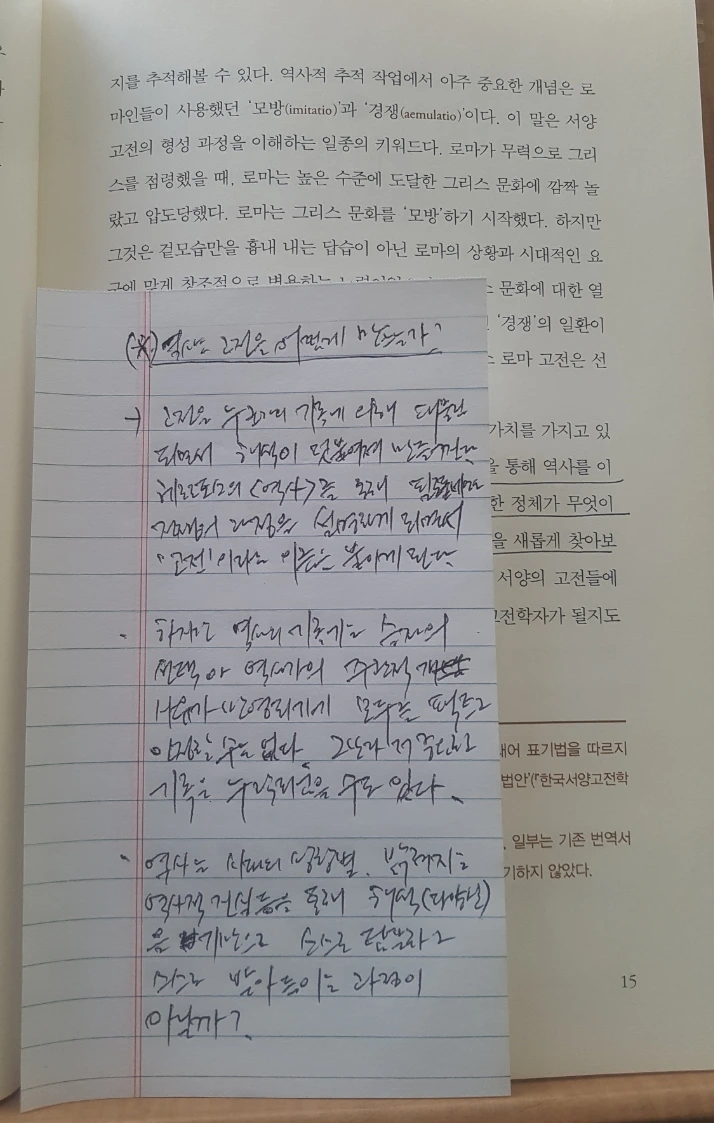 지를 추적해볼 수 있다. 역사적 추적 작업에서 아주 중요한 개념은 로
마인들이 사용했던 ‘모방(imitatio)’과 ‘경쟁(aemulatio)’이다. 이 말은 서양
고전의 형성 과정을 이해하는 일종의 키워드다. 로마가 무력으로 그리
스를 점령했을 때, 로마는 높은 수준에 도달한 그리스 문화에 깜짝 놀
랐고 압도당했다. 로마는 그리스 문화를 ‘모방’하기 시작했다. 하지만
그것은 겉모습만을 흉내 내는 답습이 아닌 로마의 상황과 시대적인 요
구에 맞게 창조적으로 변용하는
문화에 대한 열
‘경쟁’의 일환이
로마 고전은 선
가치를 가지고 있
을 통해 역사를 이
한 정체가 무엇이
을 새롭게 찾아보
서양의 고전들에
고전학자가 될지도
표기법을 따르지
법안’(『한국서양고전학
일부는 기존 번역서
기하지 않았다.
15
역사는 고전을 어떻게 만드는가?
→ 고전은 누군가의 기록에 의해
되면서 해석이 덧붙여져
<역사>를 통해
과정을 설명하게 되면서
"고전"이라는 이름을 붙이게 된다
· 하지만 역사의 기록에는 승자의
선택과 역사가의 주관적
모두를 팩트로
수는 없다
기록은 누락되었을 수도 있다.
· 역사는 시대의 상황별,
역사적 을 통해 해석(다양성)
스스로
받아들이는 과정이
아닐까?